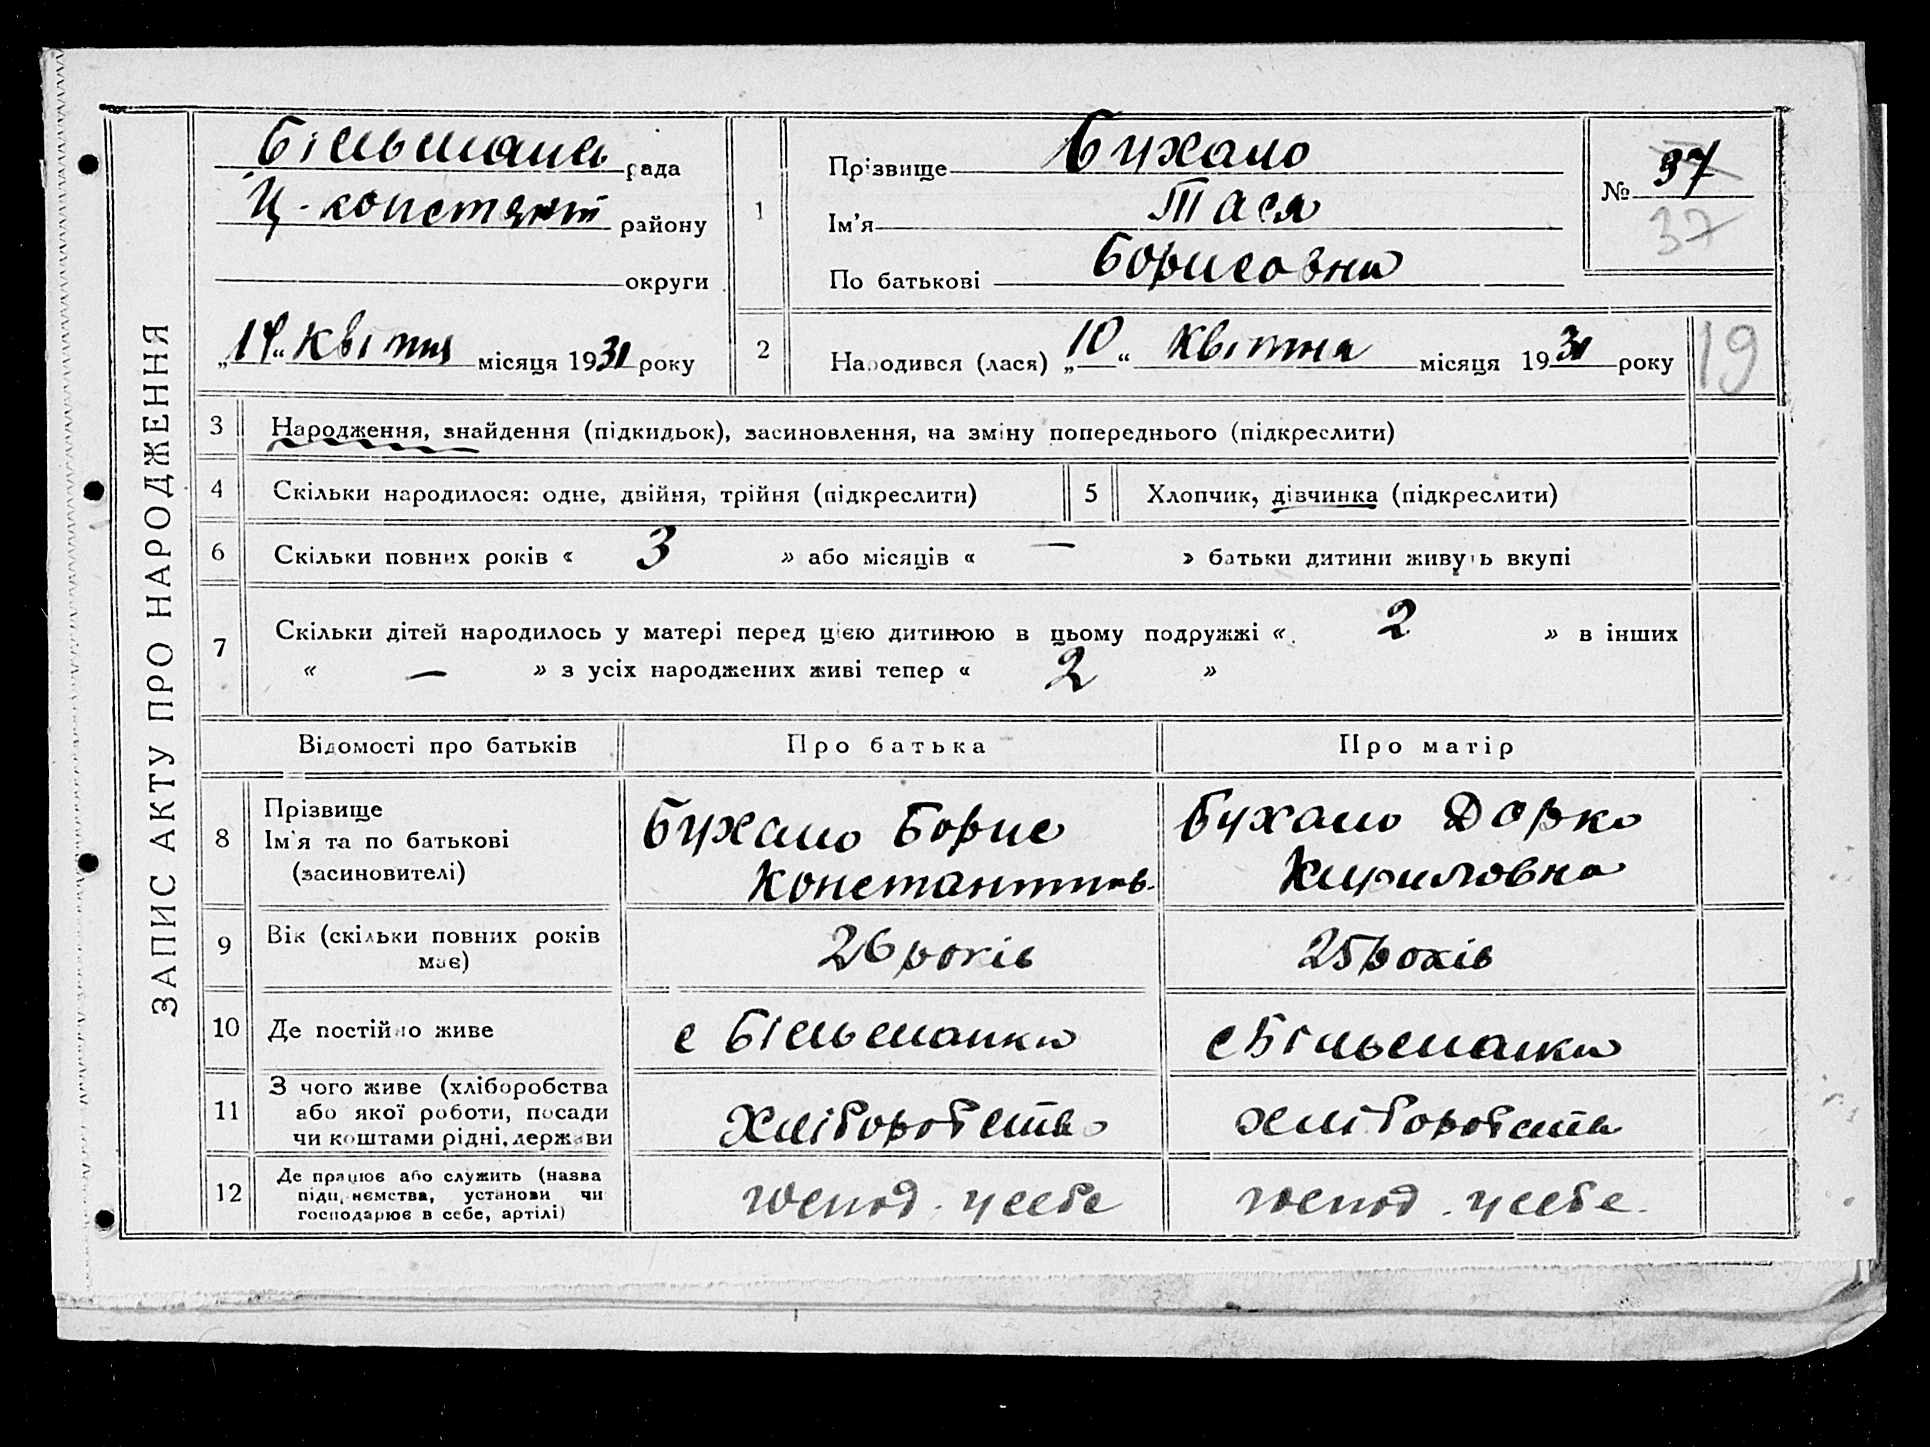 ЗАПИС АКТУ ПРО НАРОДЖЕННЯ
Більмань рада
Ц-констянт району
округи
„14“ Квітня місяця 1931 року
1
Прізвище Бухало
Ім'я Тася
По батькові Борисовна
№ 37
37
2
Народився (лася) „10“ Квітня місяця 1931 року
19
3 Народження, знайдення (підкидьок), засиновлення, на зміну попереднього (підкреслити)
4 Скільки народилося: одне, двійня, трійня (підкреслити)
5 Хлопчик, дівчинка (підкреслити)
6 Скільки повних років « 3 » або місяців « — » батьки дитини живуть вкупі
7 Скільки дітей народилось у матері перед цією дитиною в цьому подружжі « 2 » в інших
« — » з усіх народжених живі тепер « 2 »
Відомості про батьків
Про батька
Про матір
8 Прізвище
Ім'я та по батькові
(засиновителі)
Бухало Борис
Константинов.
Бухало Дарка
Кириловна
9 Вік (скільки повних років
має)
26 років
25 років
10 Де постійно живе
с Більманка
с Більманка
11 З чого живе (хліборобства
або якої роботи, посади
чи коштами рідні, держави
Хліборобств
хліборобств
12 Де працює або служить (назва
підприємства, установи чи
господарює в себе, артілі)
господ. у себе
господ. у себе.